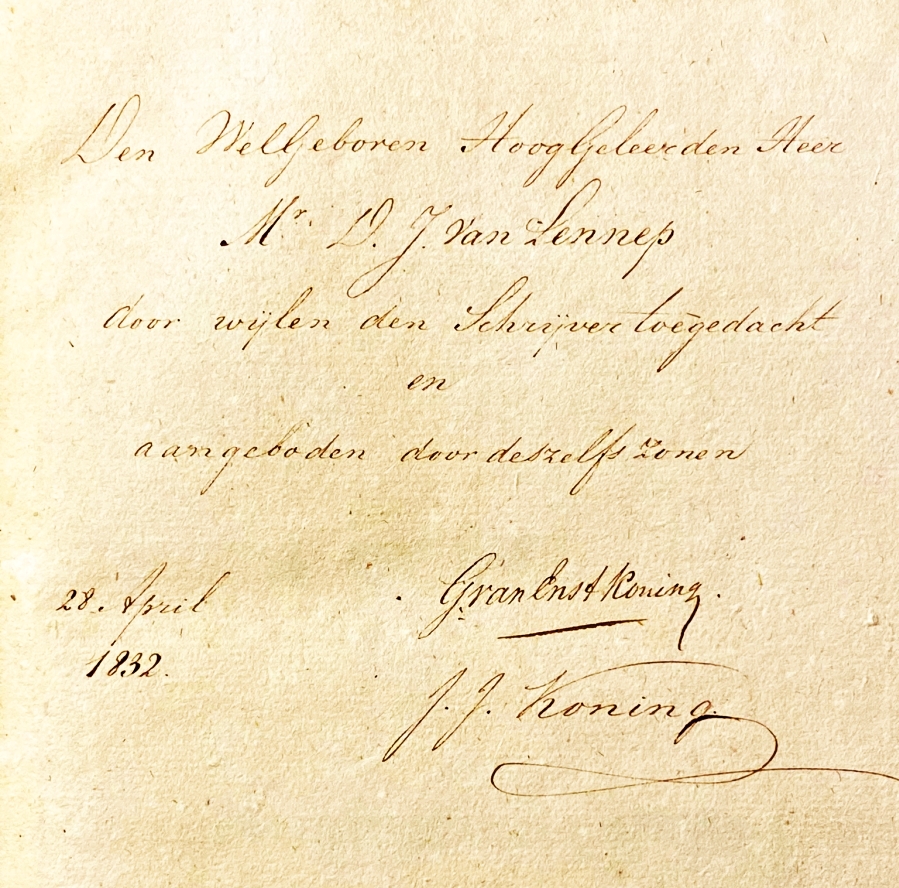 Den WelGeboren HoogGeleerden Heer
Mr. D. J. Van Lennep
door wijlen den Schrijver toegedacht
en
aangeboden door deszelfs zonen
28. April
1832.
Koning.
J. J. Koning.